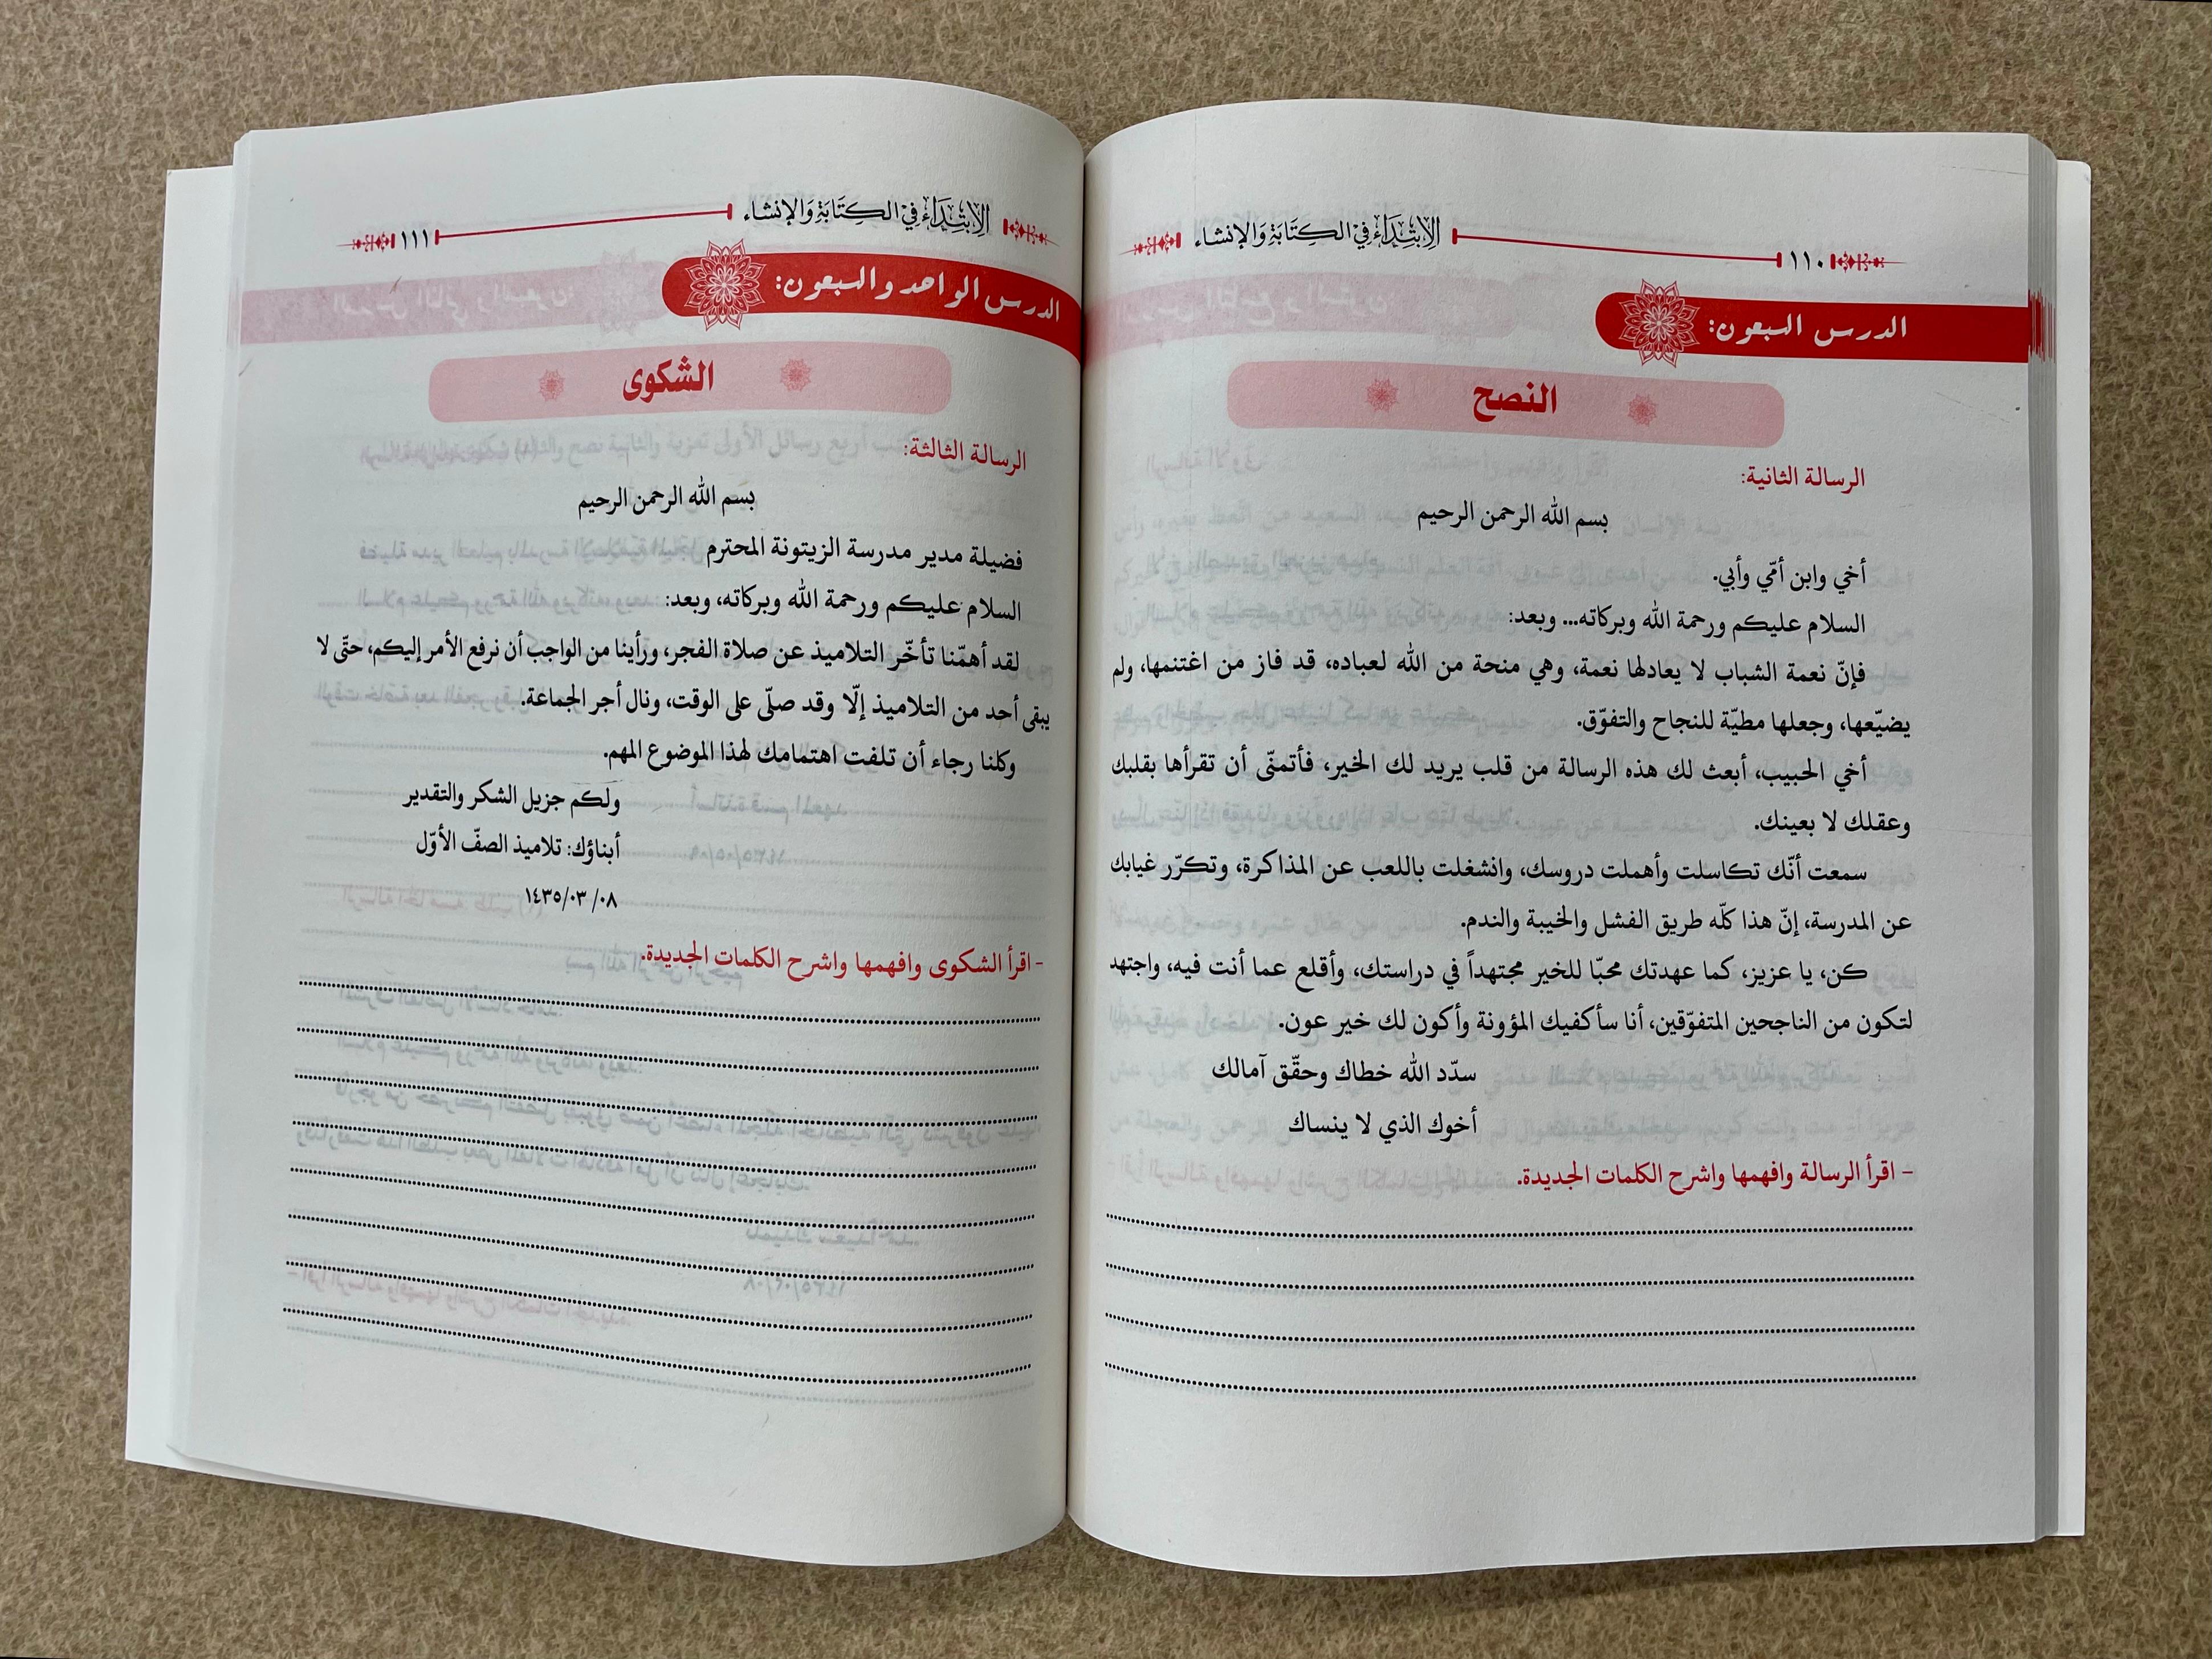 ١١٠ الِابْتِدَاءُ فِي الكِتَابَةِ وَالإِنشَاء
الدرس السبعون:
النصح
الرسالة الثانية:
بسم الله الرحمن الرحيم
أخي وابن أمّي وأبي.
السلام عليكم ورحمة الله وبركاته... وبعد:
فإنّ نعمة الشباب لا يعادلها نعمة، وهي منحة من الله لعباده، قد فاز من اغتنمها، ولم
يضيّعها، وجعلها مطيّة للنجاح والتفوّق.
أخي الحبيب، أبعث لك هذه الرسالة من قلب يريد لك الخير، فأتمنّى أن تقرأها بقلبك
وعقلك لا بعينك.
سمعت أنّك تكاسلت وأهملت دروسك، وانشغلت باللعب عن المذاكرة، وتكرّر غيابك
عن المدرسة، إنّ هذا كلّه طريق الفشل والخيبة والندم.
كن، يا عزيز، كما عهدتك محبّا للخير مجتهداً في دراستك، وأقلع عما أنت فيه، واجتهد
لتكون من الناجحين المتفوّقين، أنا سأكفيك المؤونة وأكون لك خير عون.
سدّد الله خطاك وحقّق آمالك
أخوك الذي لا ينساك
- اقرأ الرسالة وافهمها واشرح الكلمات الجديدة.
الِابْتِدَاءُ فِي الكِتَابَةِ وَالإِنشَاء ١١١
الدرس الواحد والسبعون:
الشكوى
الرسالة الثالثة:
بسم الله الرحمن الرحيم
فضيلة مدير مدرسة الزيتونة المحترم
السلام عليكم ورحمة الله وبركاته، وبعد:
لقد أهمّنا تأخّر التلاميذ عن صلاة الفجر، ورأينا من الواجب أن نرفع الأمر إليكم، حتّى لا
يبقى أحد من التلاميذ إلّا وقد صلّى على الوقت، ونال أجر الجماعة.
وكلنا رجاء أن تلفت اهتمامك لهذا الموضوع المهم.
ولكم جزيل الشكر والتقدير
أبناؤك: تلاميذ الصفّ الأوّل
١٤٣٥/٠٣/ ٠٨
- اقرأ الشكوى وافهمها واشرح الكلمات الجديدة.